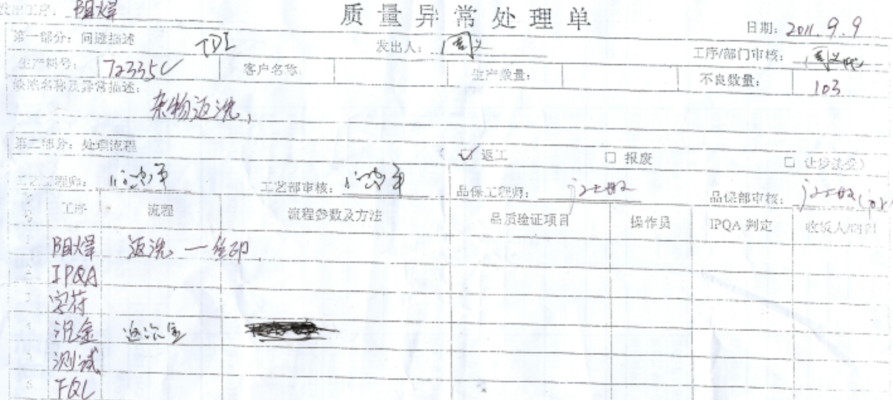 质量异常处理单
发出工序：阻焊
日期：2011.9.9
第一部分：问题描述 TDI 发出人： 工序/部门审核：
生产料号：72335C 客户名称： 生产数量： 不良数量：103
缺陷名称及异常描述：
杂物返洗，
第二部分：处理流程 返工 报废 让步接受
工艺工程师： 工艺部审核： 品保工程师： 品保部审核：
工序 流程 流程参数及方法 品质验证项目 操作员 IPQA 判定 收板人/时间
阻焊 返洗—丝印
IPQA
字符
沉金 返沉金
测试
FQC